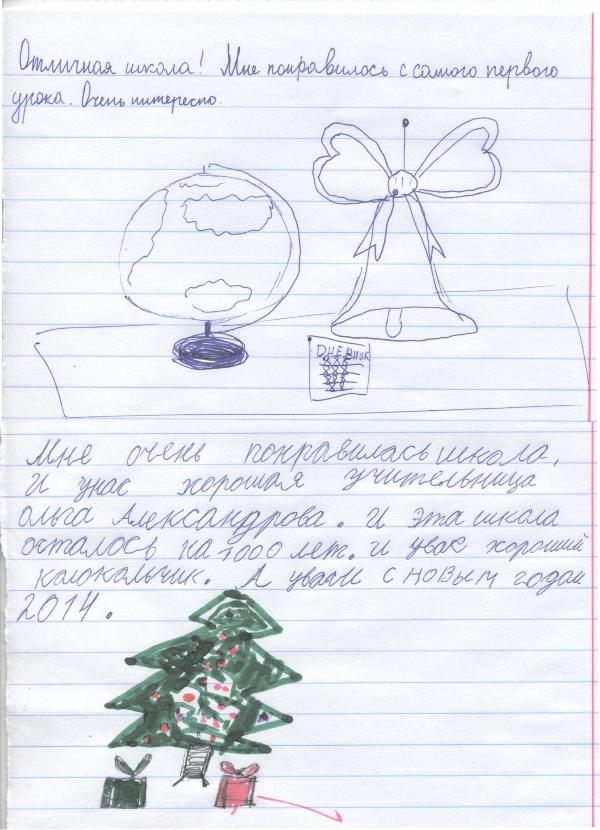 Отличная школа! Мне понравилось с самого первого
урока. Очень интересно.
ДНЕВНИК
Мне очень понравилась школа,
и унас хорошая учительница
Ольга Александрова. И эта школа
осталось на 1000 лет. и увас хороший
колокольчик. А увам с новым годом
2014.